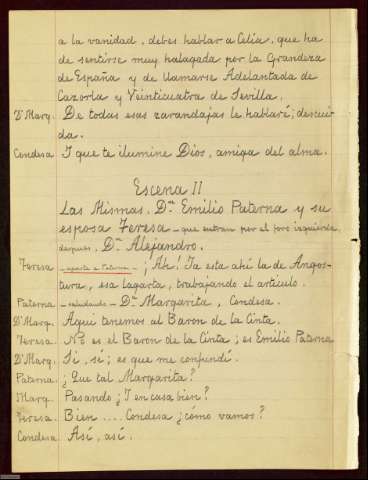 a la vanidad, debes hablar a Celia, que ha
de sentirse muy halagada por la Grandeza
de España y de llamarse Adelantada de
Cazorla y Veinticuatra de Sevilla.
Dª Marg. De todas esas zarandajas le hablaré; descui-
da.
Condesa Y que te ilumine Dios, amiga del alma.
Escena II
Las Mismas, Dn. Emilio Paterna y su
esposa Teresa - que entran por el foro izquierda,
después, Dn. Alejandro.
Teresa - aparte a Paterna - ¡Ah! Ya esta ahí la de Angos-
tura, esa lagarta, trabajando el artículo.
Paterna - saludando - Dª. Margarita, Condesa.
Dª Marg. Aquí tenemos al Baron de la Cinta.
Teresa No es el Baron de la Cinta; es Emilio Paterna
Dª Marg. Si, si; es que me confundí.
Paterna ¿Que tal Margarita?
Marg. Pasando ¿Y en casa bien?
Teresa Bien .... Condesa ¿cómo vamos?
Condesa Así, así.